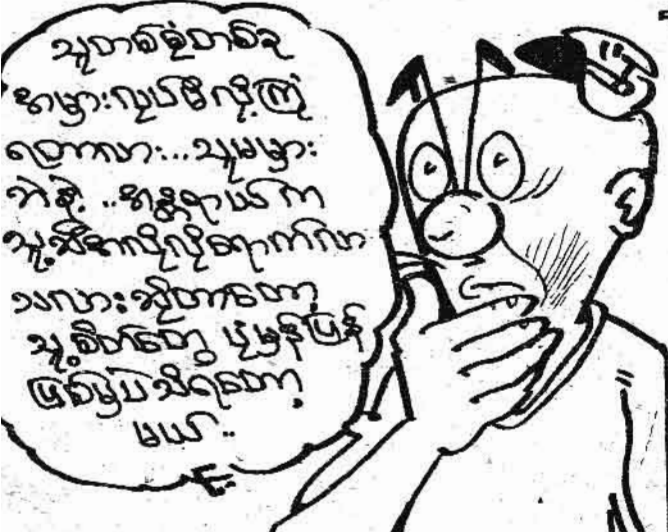 သူတစ်ခုံတစ်ခု
အမှားလုပ်မိလို့ကြုံ
ရတာလား...သူမမှား
ဘဲနဲ့ ..အန္တရာယ်က
သူ့ဆီအလိုလိုရောက်လာ
သလားဆိုတာတော့
သူ့စိတ်တွေ ပုံမှန်ပြန်
ဖြစ်မှပဲသိရတော့
မယ်..